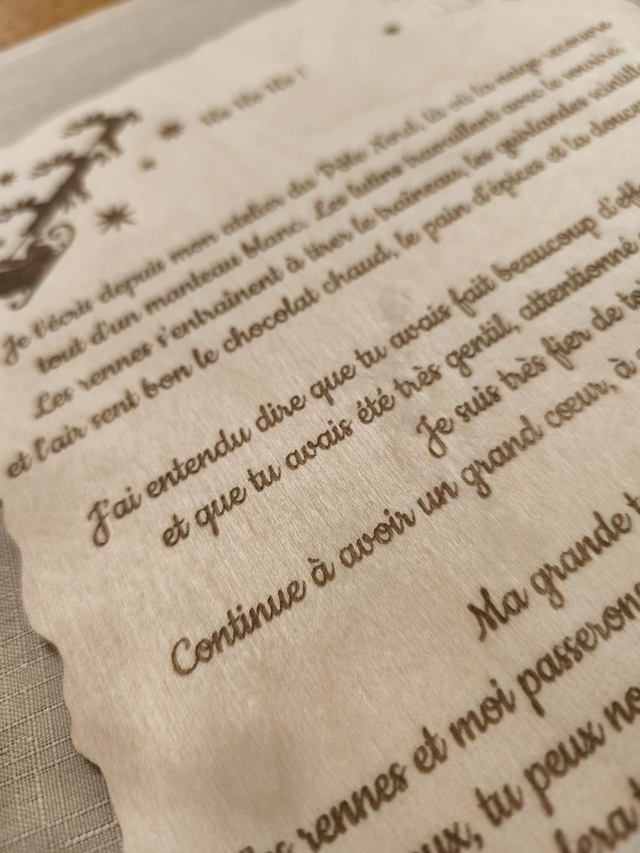 Ho Ho Ho !
Je t'écris depuis mon atelier du Pôle Nord, là où la neige recouvre
tout d'un manteau blanc. Les lutins travaillent avec le sourire.
Les rennes s'entraînent à tirer le traîneau, les guirlandes
et l'air sent bon le chocolat chaud, le pain d'épices et la
J'ai entendu dire que tu avais fait beaucoup
et que tu avais été très gentil, attentionné
Je suis très fier de toi
Continue à avoir un grand cœur, à
Ma grande
rennes et moi
tu peux